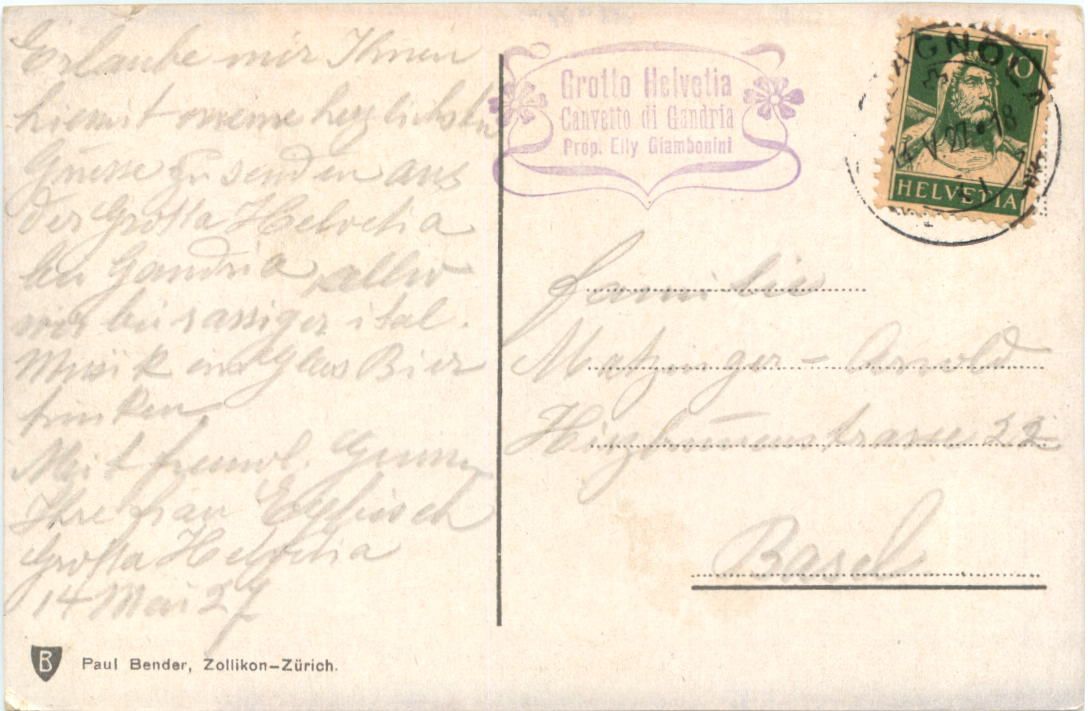 Erlaube mir Ihnen
hiemit meine herzlichsten
Grüsse zu senden aus
der Grotta Helvetia
bei Gandria allwo
wir bei rassiger ital.
Musik ein Glas Bier
trinken.
Mit freundl. Gruss
Ihre Frau
Grotta Helvetia
14 Mai 27
Paul Bender, Zollikon-Zürich.
Grotto Helvetia
Canvetto di Gandria
Prop. Elly Giambonini
AGNOLA
14 V 27 18
10
HELVETIA
Familie
Matzinger - Arnold
22
Basel
B